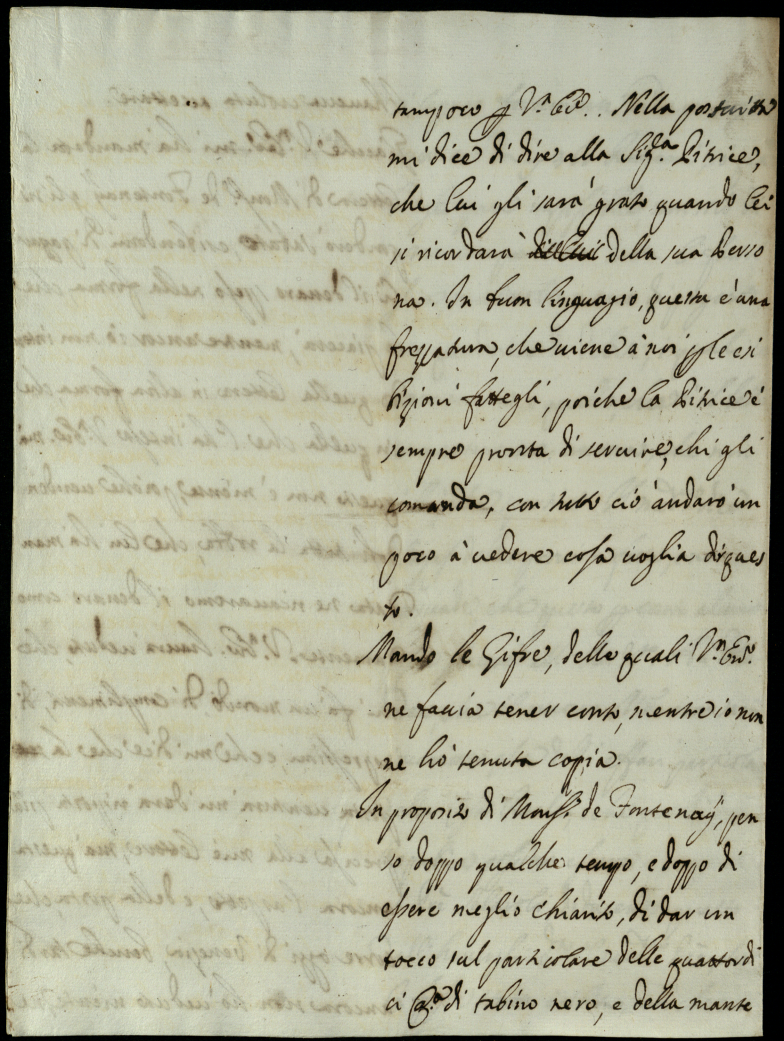 tampoco p V.ª Ecc.ª. Nella poscritta
mi dice di dire alla Sig.ra Pitrice,
che lui gli sarà grato quando lei
si ricordarà della sua Perso
na. In buon linguagio, questa è una
frezzadura, che viene à noi p le esi
bizioni fattegli, poiche la Pitrice è
sempre pronta di servire, chi gli
comanda, con tutto ciò andarò un
poco à vedere cosa voglia dir ques
to.
Mando le Zifre, delle quali V.ª Ecc.ª
ne faccia tener conto, mentre io non
ne hò tenuta copia.
In proposito di Mons.r de Fontenaÿ, pen
so doppo qualche tempo, e doppo di
essere meglio chiarito, di dar un
tocco sul particolare delle quattordi
ci di tabino nero, e della mante